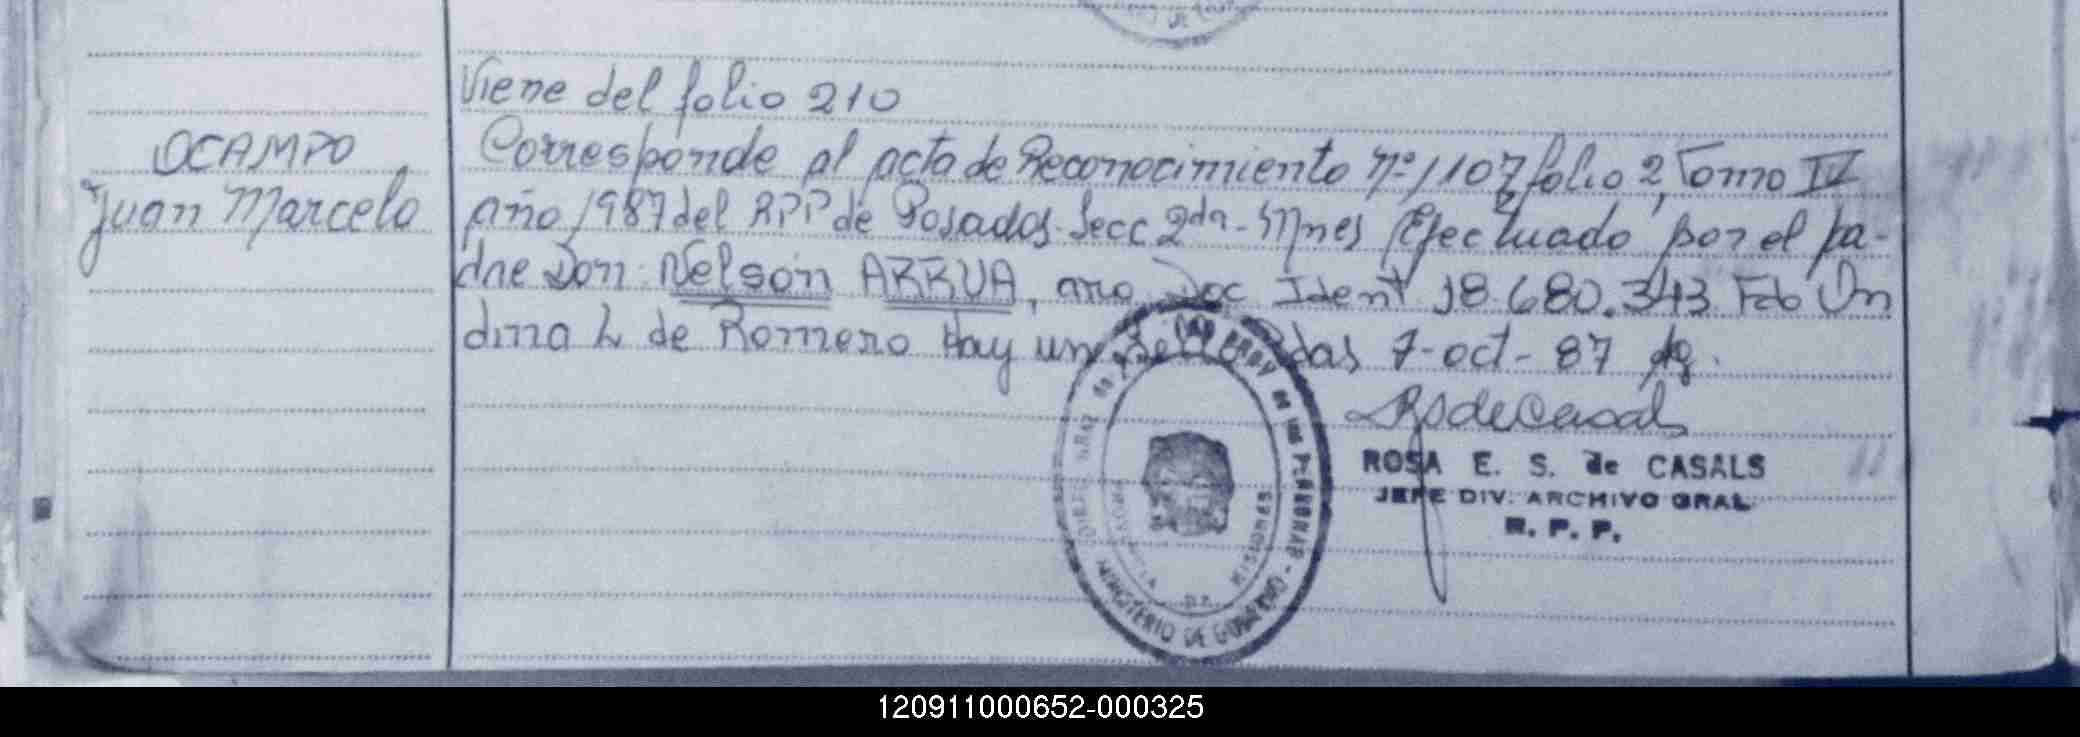 Viene del folio 210
OCAMPO
Juan Marcelo
Corresponde al acta de Reconocimiento nº 1107 folio 2, Tomo IV
año 1987 del RPP de Posadas Secc 2da - Mnes Efectuado por el pa-
dre Don Nelson ARRUA, arg Doc Ident 18.680.343 Fdo On
dina L de Romero Hay un sello Pdas 7-oct-87
ROSA E. S. de CASALS
JEFE DIV. ARCHIVO GRAL
R. P. P.
MINISTERIO DE GOBIERNO
MISIONES
120911000652-000325